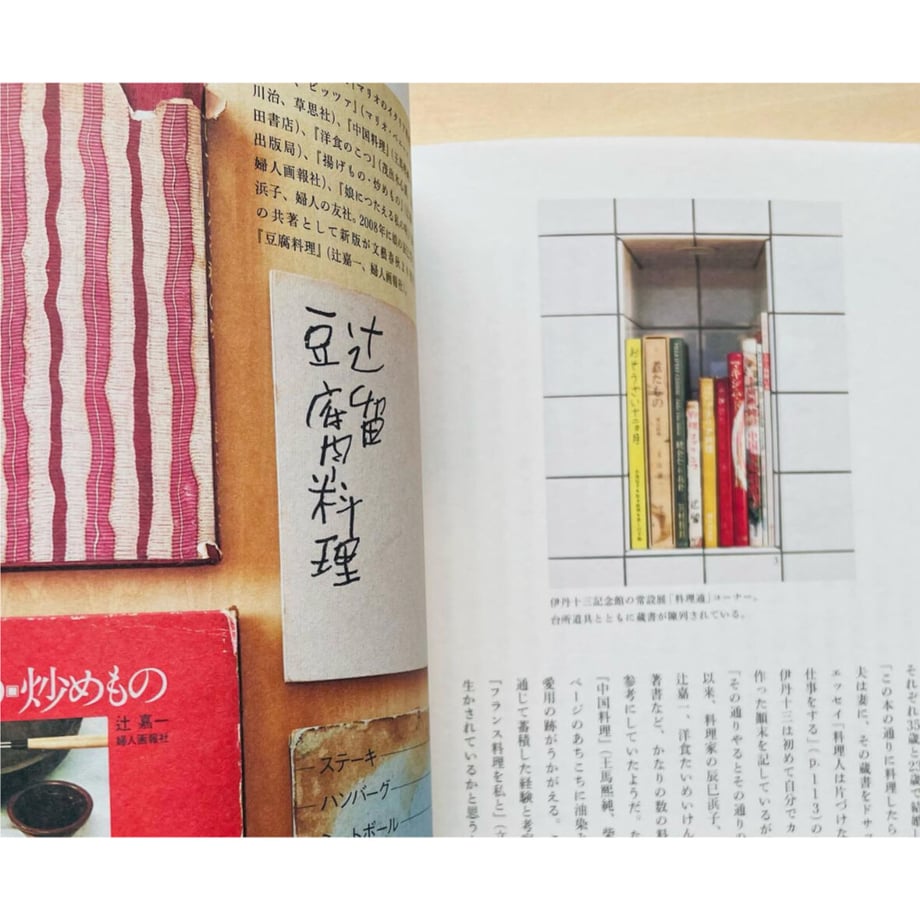 マリオのイタリア
ピッツァ』(マリオ・ベ
川治、草思社)、『中国料理』(王馬
田書店)、『洋食のこつ』(茂出木心護
出版局)、『揚げもの・炒めもの』
婦人画報社)、『娘につたえる私の
浜子、婦人の友社。2008年に娘の
の共著として新版が文藝春秋より
『豆腐料理』(辻嘉一、婦人画報社)。
辻留
豆腐料理
炒めもの
辻 嘉一
婦人画報社
ステーキ
ハンバーグ
ミートボール
おそうざい十二カ月
煮たもの
3
伊丹十三記念館の常設展「料理通」コーナー。
台所道具とともに蔵書が陳列されている。
それぞれ35歳と23歳で結婚し
「この本の通りに料理したら
夫は妻に、その蔵書をドサ
エッセイ「料理人は片づけな
仕事をする」(p.113)の
伊丹十三は初めて自分でカ
作った顚末を記しているが
「その通りやるとその通りの
以来、料理家の辰巳浜子、
辻嘉一、洋食たいめいけん
著書など、かなりの数の料
参考にしていたようだ。た
『中国料理』(王馬熙純、柴
ページのあちこちに油染み
愛用の跡がうかがえる。こ
通じて蓄積した経験と考
『フランス料理を私と』(文
生かされているかと思う